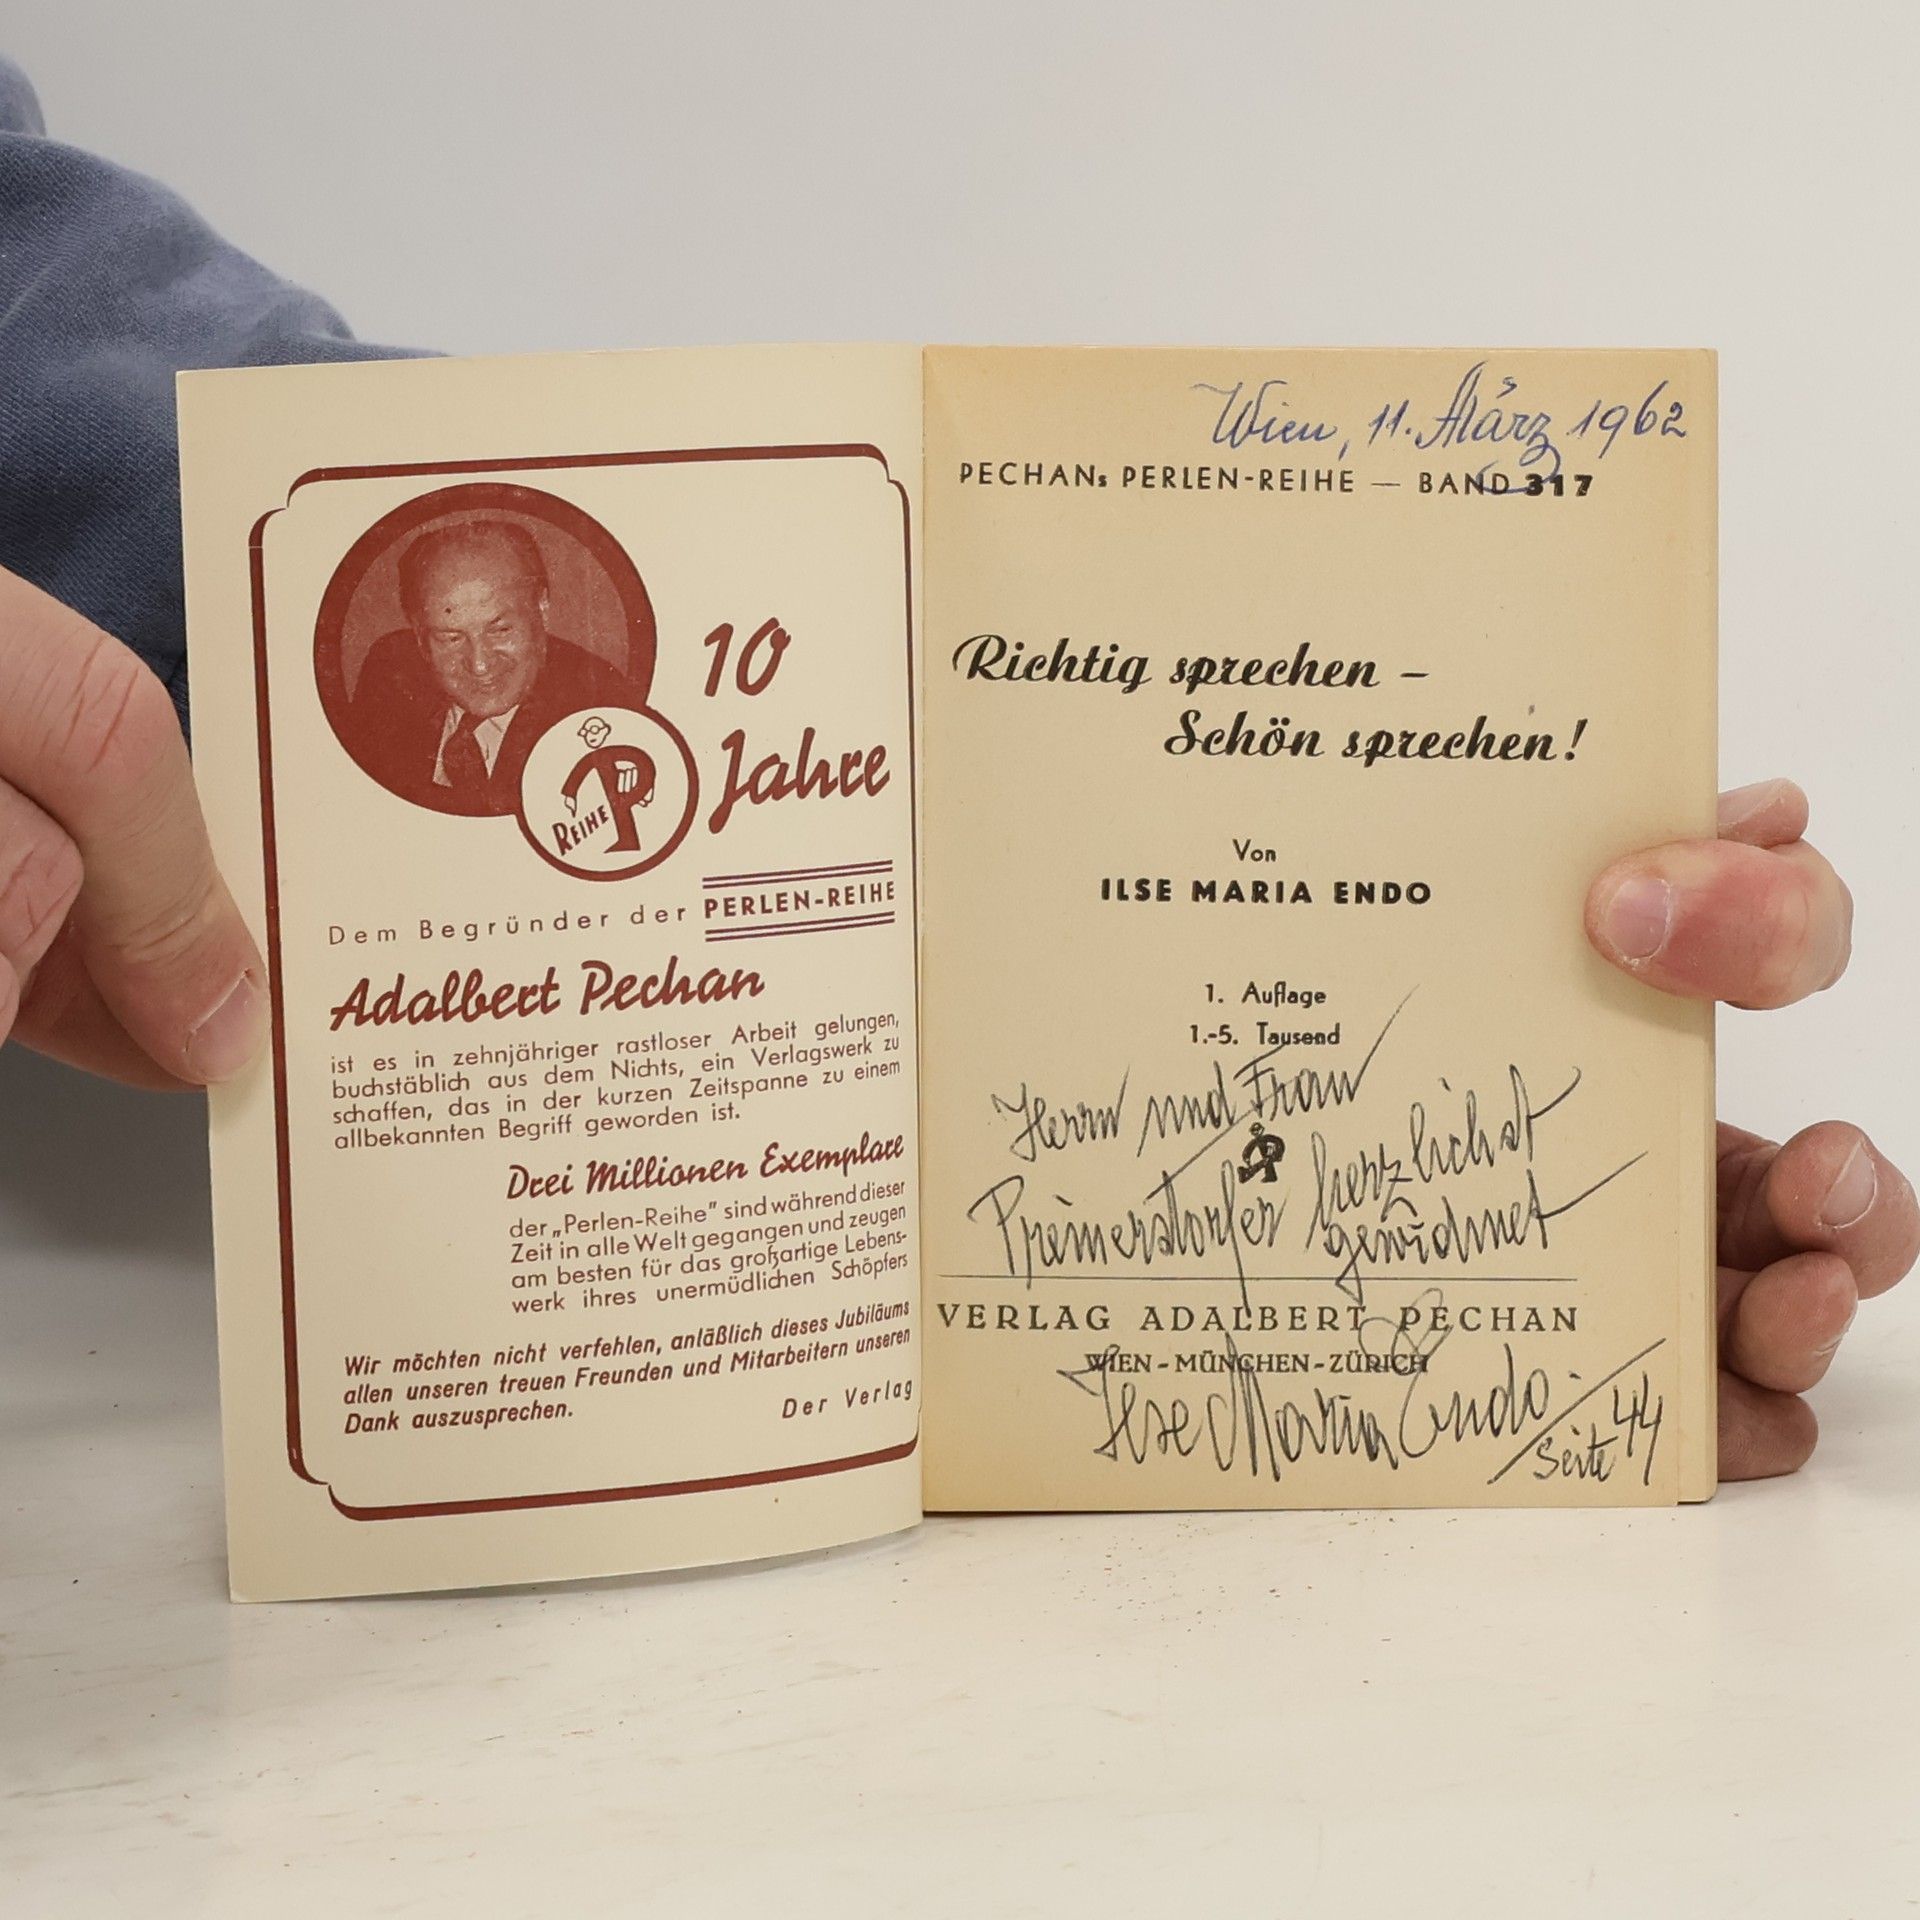 10
Jahre
REIHE
Dem Begründer der PERLEN-REIHE
Adalbert Pechan
ist es in zehnjähriger rastloser Arbeit gelungen,
buchstäblich aus dem Nichts, ein Verlagswerk zu
schaffen, das in der kurzen Zeitspanne zu einem
allbekannten Begriff geworden ist.
Drei Millionen Exemplare
der „Perlen-Reihe" sind während dieser
Zeit in alle Welt gegangen und zeugen
am besten für das großartige Lebens-
werk ihres unermüdlichen Schöpfers
Wir möchten nicht verfehlen, anläßlich dieses Jubiläums
allen unseren treuen Freunden und Mitarbeitern unseren
Dank auszusprechen.
Der Verlag
Wien, 11. März 1962
PECHANs PERLEN-REIHE — BAND 317
Richtig sprechen –
Schön sprechen!
Von
ILSE MARIA ENDO
1. Auflage
1.-5. Tausend
Herrn und Frau
Preinerstorfer herzlichst
gewidmet
VERLAG ADALBERT PECHAN
WIEN - MÜNCHEN - ZÜRICH
Ilse Maria Endo.
Seite 44